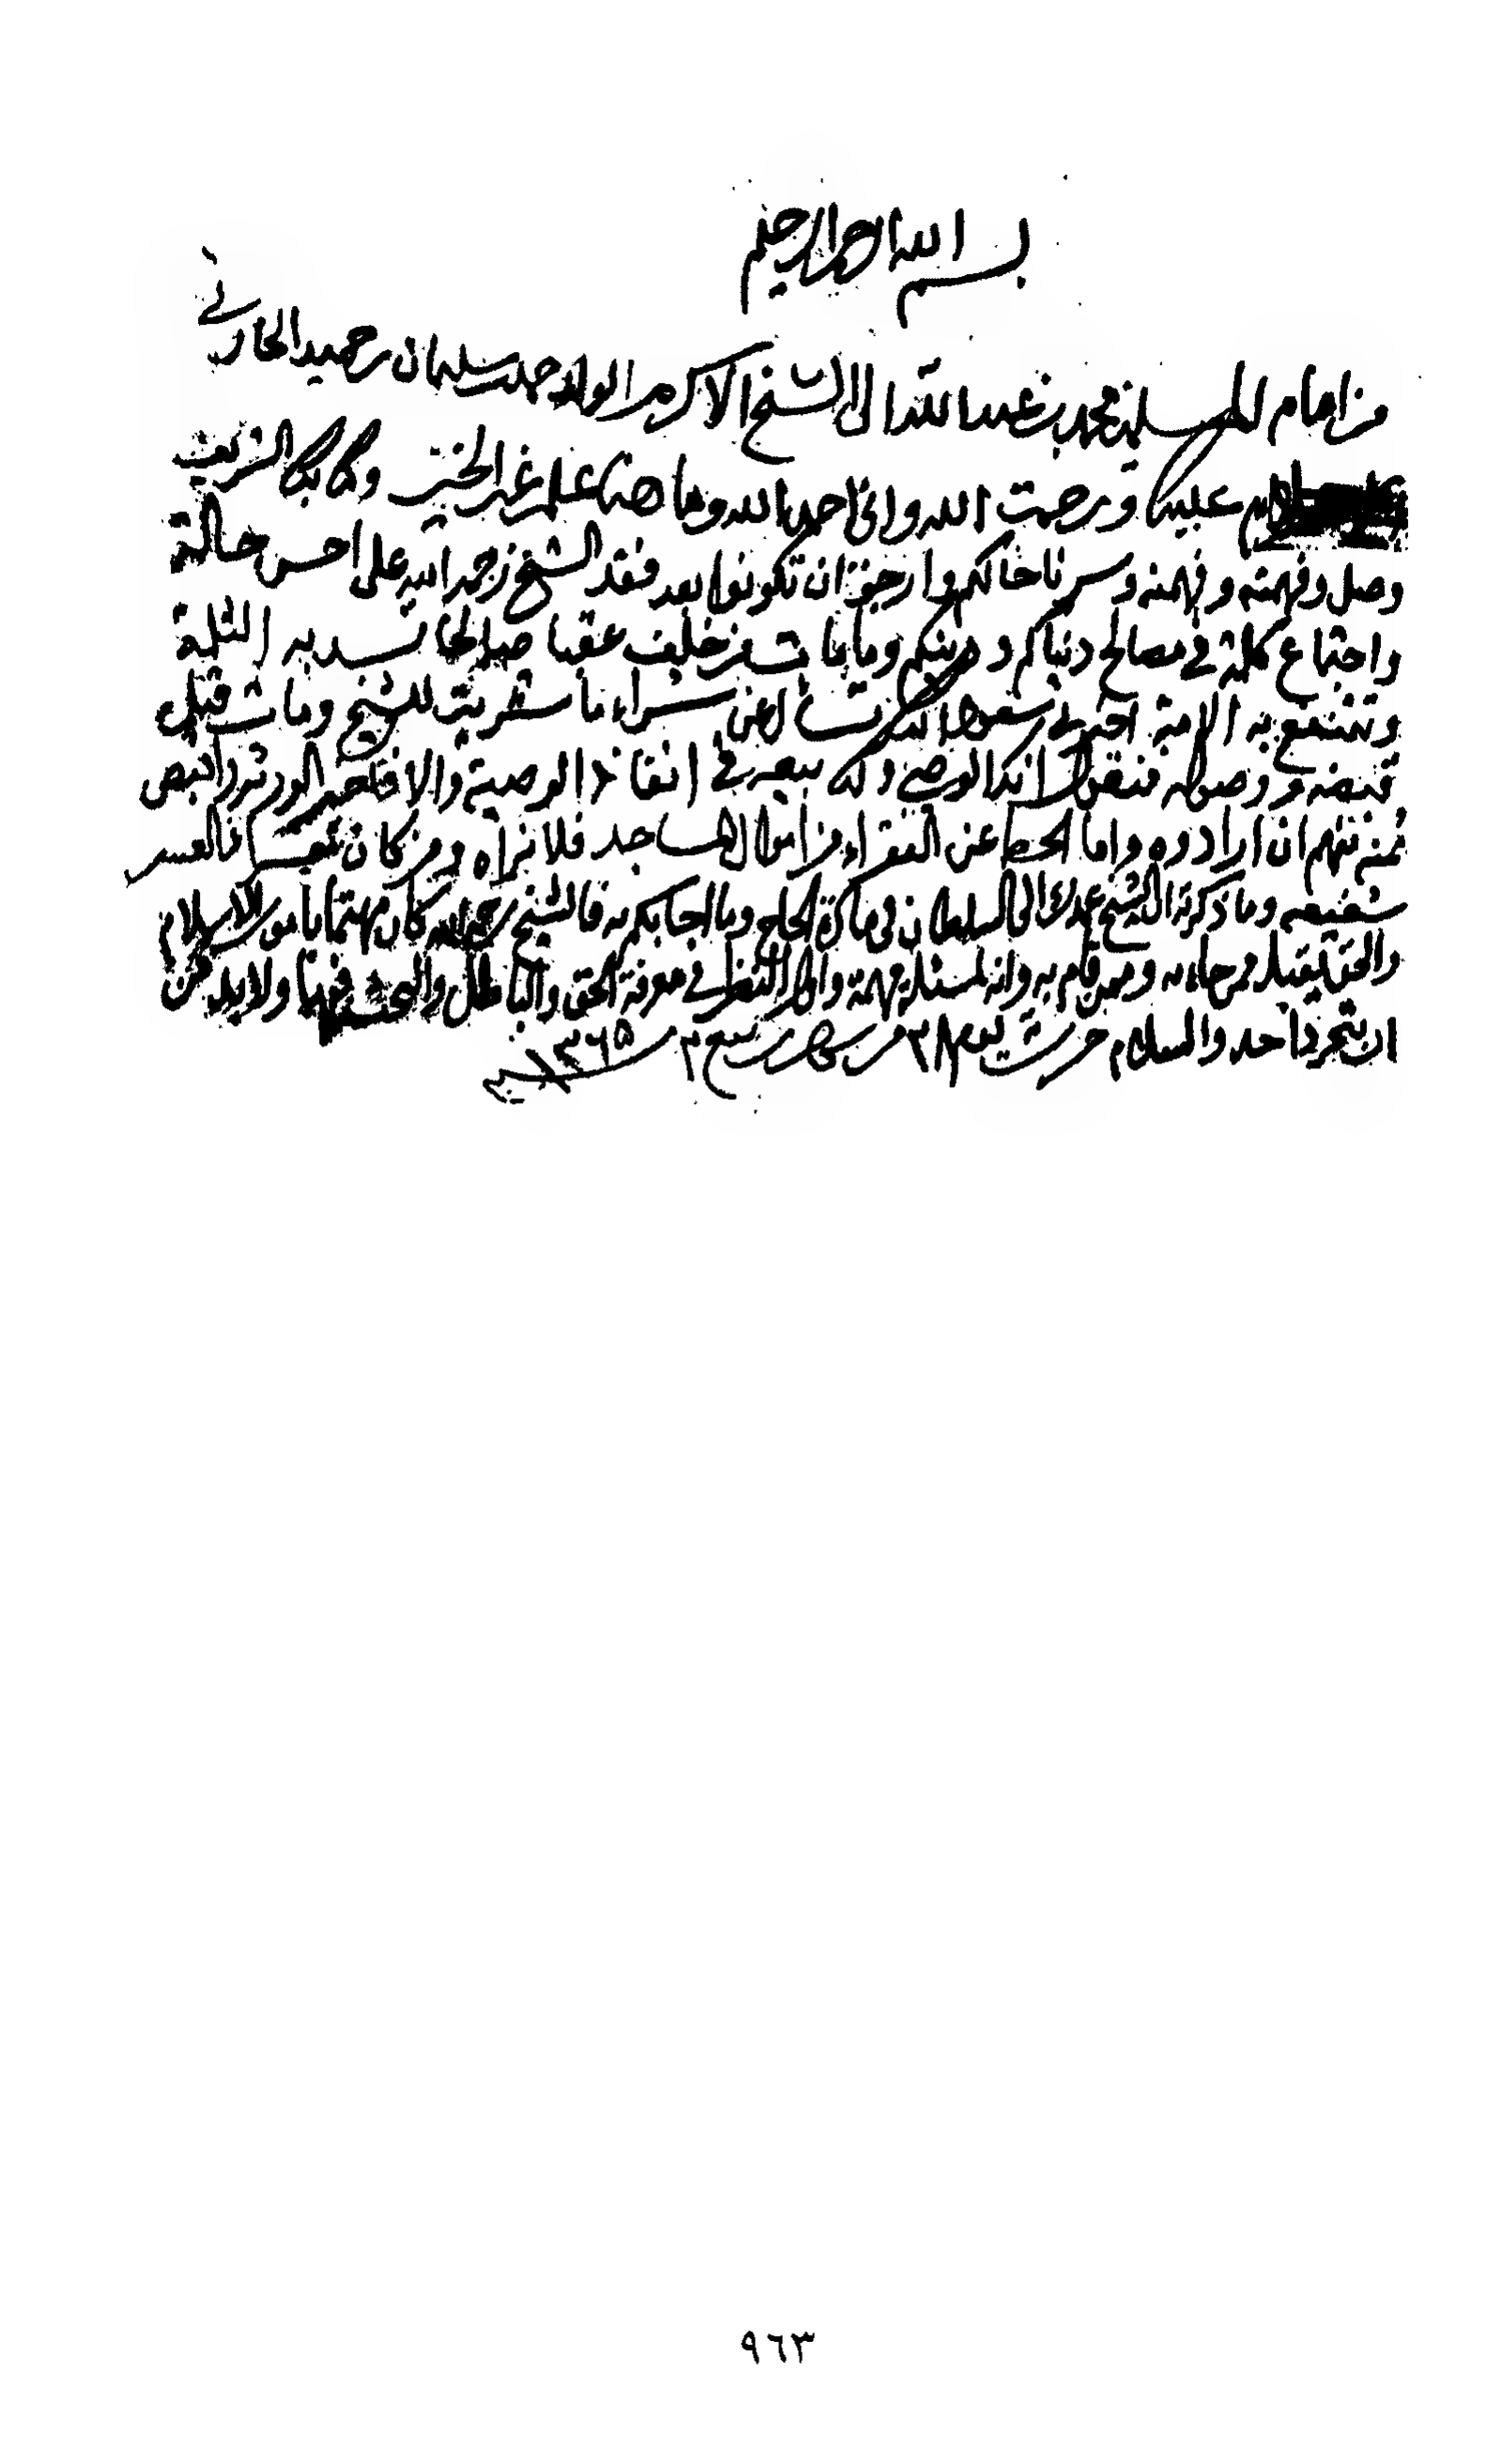 بسم الله الرحمن الرحيم
من امام المسلمين محمد بن عبدالله الى الشيخ الاكرم الولد احمد بن سليمان بن حميد الحارثي
سلام عليك ورحمت الله واني احمد الله وما هنا علم غير الخير وكتابك الشريف
وصل وفهمته وسرنا حالكم وارجو ان تكونوا بعد فقد الشيخ رحمه الله على احسن حالة
واجتماع كلمة في مصالح دنياكم ودينكم وما مات من خلف عقبا صالحا تسد به الثلمة
وتنتفع به الامة شراء ما شريته للشيخ ومات قبل
قبضه ووصوله فنقول انك الوصي ولك بيعه في انفاذ الوصية والا فخير الورثة
ثمنه منهم ان ارادوه واما الحط عن الفقراء من اموال المساجد فلا نراه ومن كان فقيرا فالعسر
شفيعه وما ذكرته الشيخ الى السلطان في الحاج وما اجابكم به فالشيخ رحمه الله كان مهتما بامور الاسلام
والحق يقبل ممن جاء به وممن قام به وانه لمسئلة مهمة النظر في معرفة الحق والباطل والبحث فيها ولا بد من
ان يتجرد احد والسلام حرر يوم ٢٨ من شهر ربيع ٢ سنة ١٣٦٥
٩٦٣